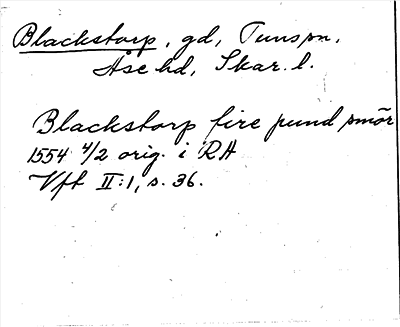 Blackstorp, gd, Tunspn.
Åse hd, Skar. l.
Blackstorp fire pund smör
1554 4/2 orig. i RA
Vft II:1, s. 36.